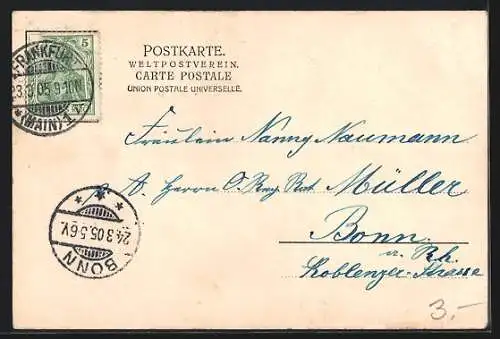 POSTKARTE.
WELTPOSTVEREIN.
CARTE POSTALE
UNION POSTALE UNIVERSELLE.
5
FRANKFURT
23.3.05.9-10N
*(MAIN)1
Fräulein Nanny Naumann
A. Herrn O. Reg. Rat Müller
Bonn
a. Rh.
Koblenzer-Strasse
24.3.05.5-6V.
BONN
3.-